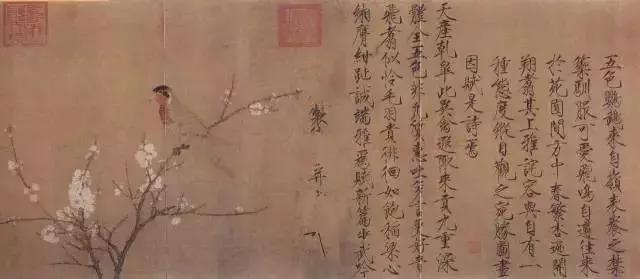 五色鸚鵡來自嶺表養之禁
籞馴服可愛飛鳴自適往來
於苑囿間方中春繁杏遍開
翔翥其上雅詫容與自有一
種態度縱目觀之宛勝圖畫
因賦是詩焉
天產乾皋此異禽遐陬來貢九重深
體全五色非凡質惠吐多言更好音
飛翥似憐毛羽貴徘徊如飽稻粱心
緗膺紺趾誠端雅為賦新篇步武吟
製 并